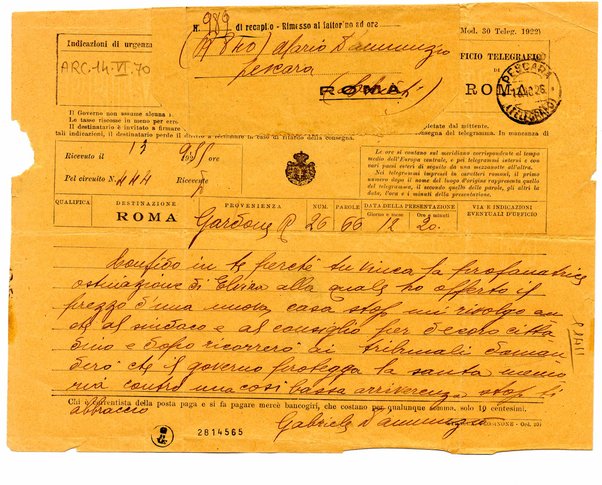 N. 989 di recapito - Rimesso al fattorino ad ore
(Mod. 30 Teleg. 1922)
Indicazioni di urgenza
Mario D'annunzio
Pescara
ROMA
ARC.14.VI.70
FICIO TELEGRAFI
DI
ROM
PESCARA
(TELEGRAFO)
Il Governo non assume alcuna
Le tasse riscosse in meno per
Il destinatario è invitato a firmare
tali indicazioni, il destinatario perde il diritto a
in caso di ritardo della consegna.
pietate dal mittente.
consegna del telegramma. In mancanza di
Ricevuto il 13
Pel circuito N.
Ricevente
Le ore si contano sul meridiano corrispondente al tempo
medio dell'Europa centrale, e pei telegrammi interni e con
vari paesi esteri di seguito da una mezzanotte all'altra.
Nei telegrammi impressi in caratteri romani, il primo
numero dopo il nome del luogo d'origine rappresenta quello
del telegramma, il secondo quello delle parole, gli altri la
data, l'ora e i minuti della presentazione.
QUALIFICA
DESTINAZIONE
PROVENIENZA
NUM.
PAROLE
DATA DELLA PRESENTAZIONE
Giorno e mese
Ore e minuti
VIA E INDICAZIONI
EVENTUALI D'UFFICIO
ROMA
Gardone R 26 66 12 20
Confido in te perché tu vinca la profanatrice
ostinazione di Elvira alla quale ho offerto il
prezzo d'una nuova casa stop mi rivolgo an
che al sindaco e al consiglio per decoro citta
dino e dopo ricorrerò ai tribunali doman
derò che il governo protegga la santa memo
ria contro una così bassa irriverenza stop ti
abbraccio
Chi è correntista della posta paga e si fa pagare mercè bancogiri, che costano per qualunque somma, solo 10 centesimi.
Gabriele D'annunzio
2814565